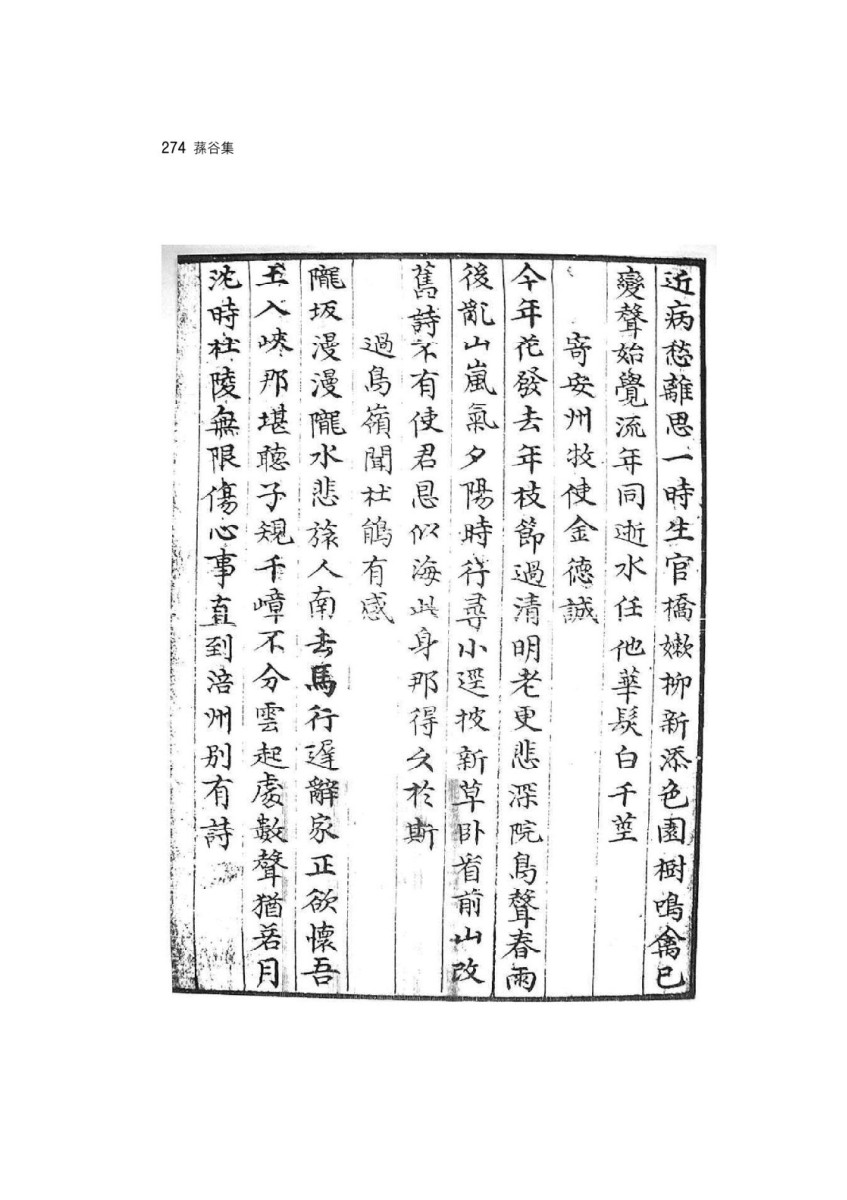 274 蓀谷集
近病愁離思一時生官橋嫰柳新添色園樹鳴禽已
變聲始覺流年同逝水任他華髮白千莖
寄安州牧使金德諴
今年花發去年枝節過清明老更悲深院鳥聲春雨
後亂山嵐氣夕陽時行尋小逕披新草卧看前山改
舊詩不有使君恩似海此身那得久於斯
過鳥嶺聞杜鵑有感
隴坂漫漫隴水悲旅人南去馬行遲辭家正欲懷吾
土入峽那堪聽子規千嶂不分雲起處數聲猶若月
沈時杜陵無限傷心事直到涪州別有詩